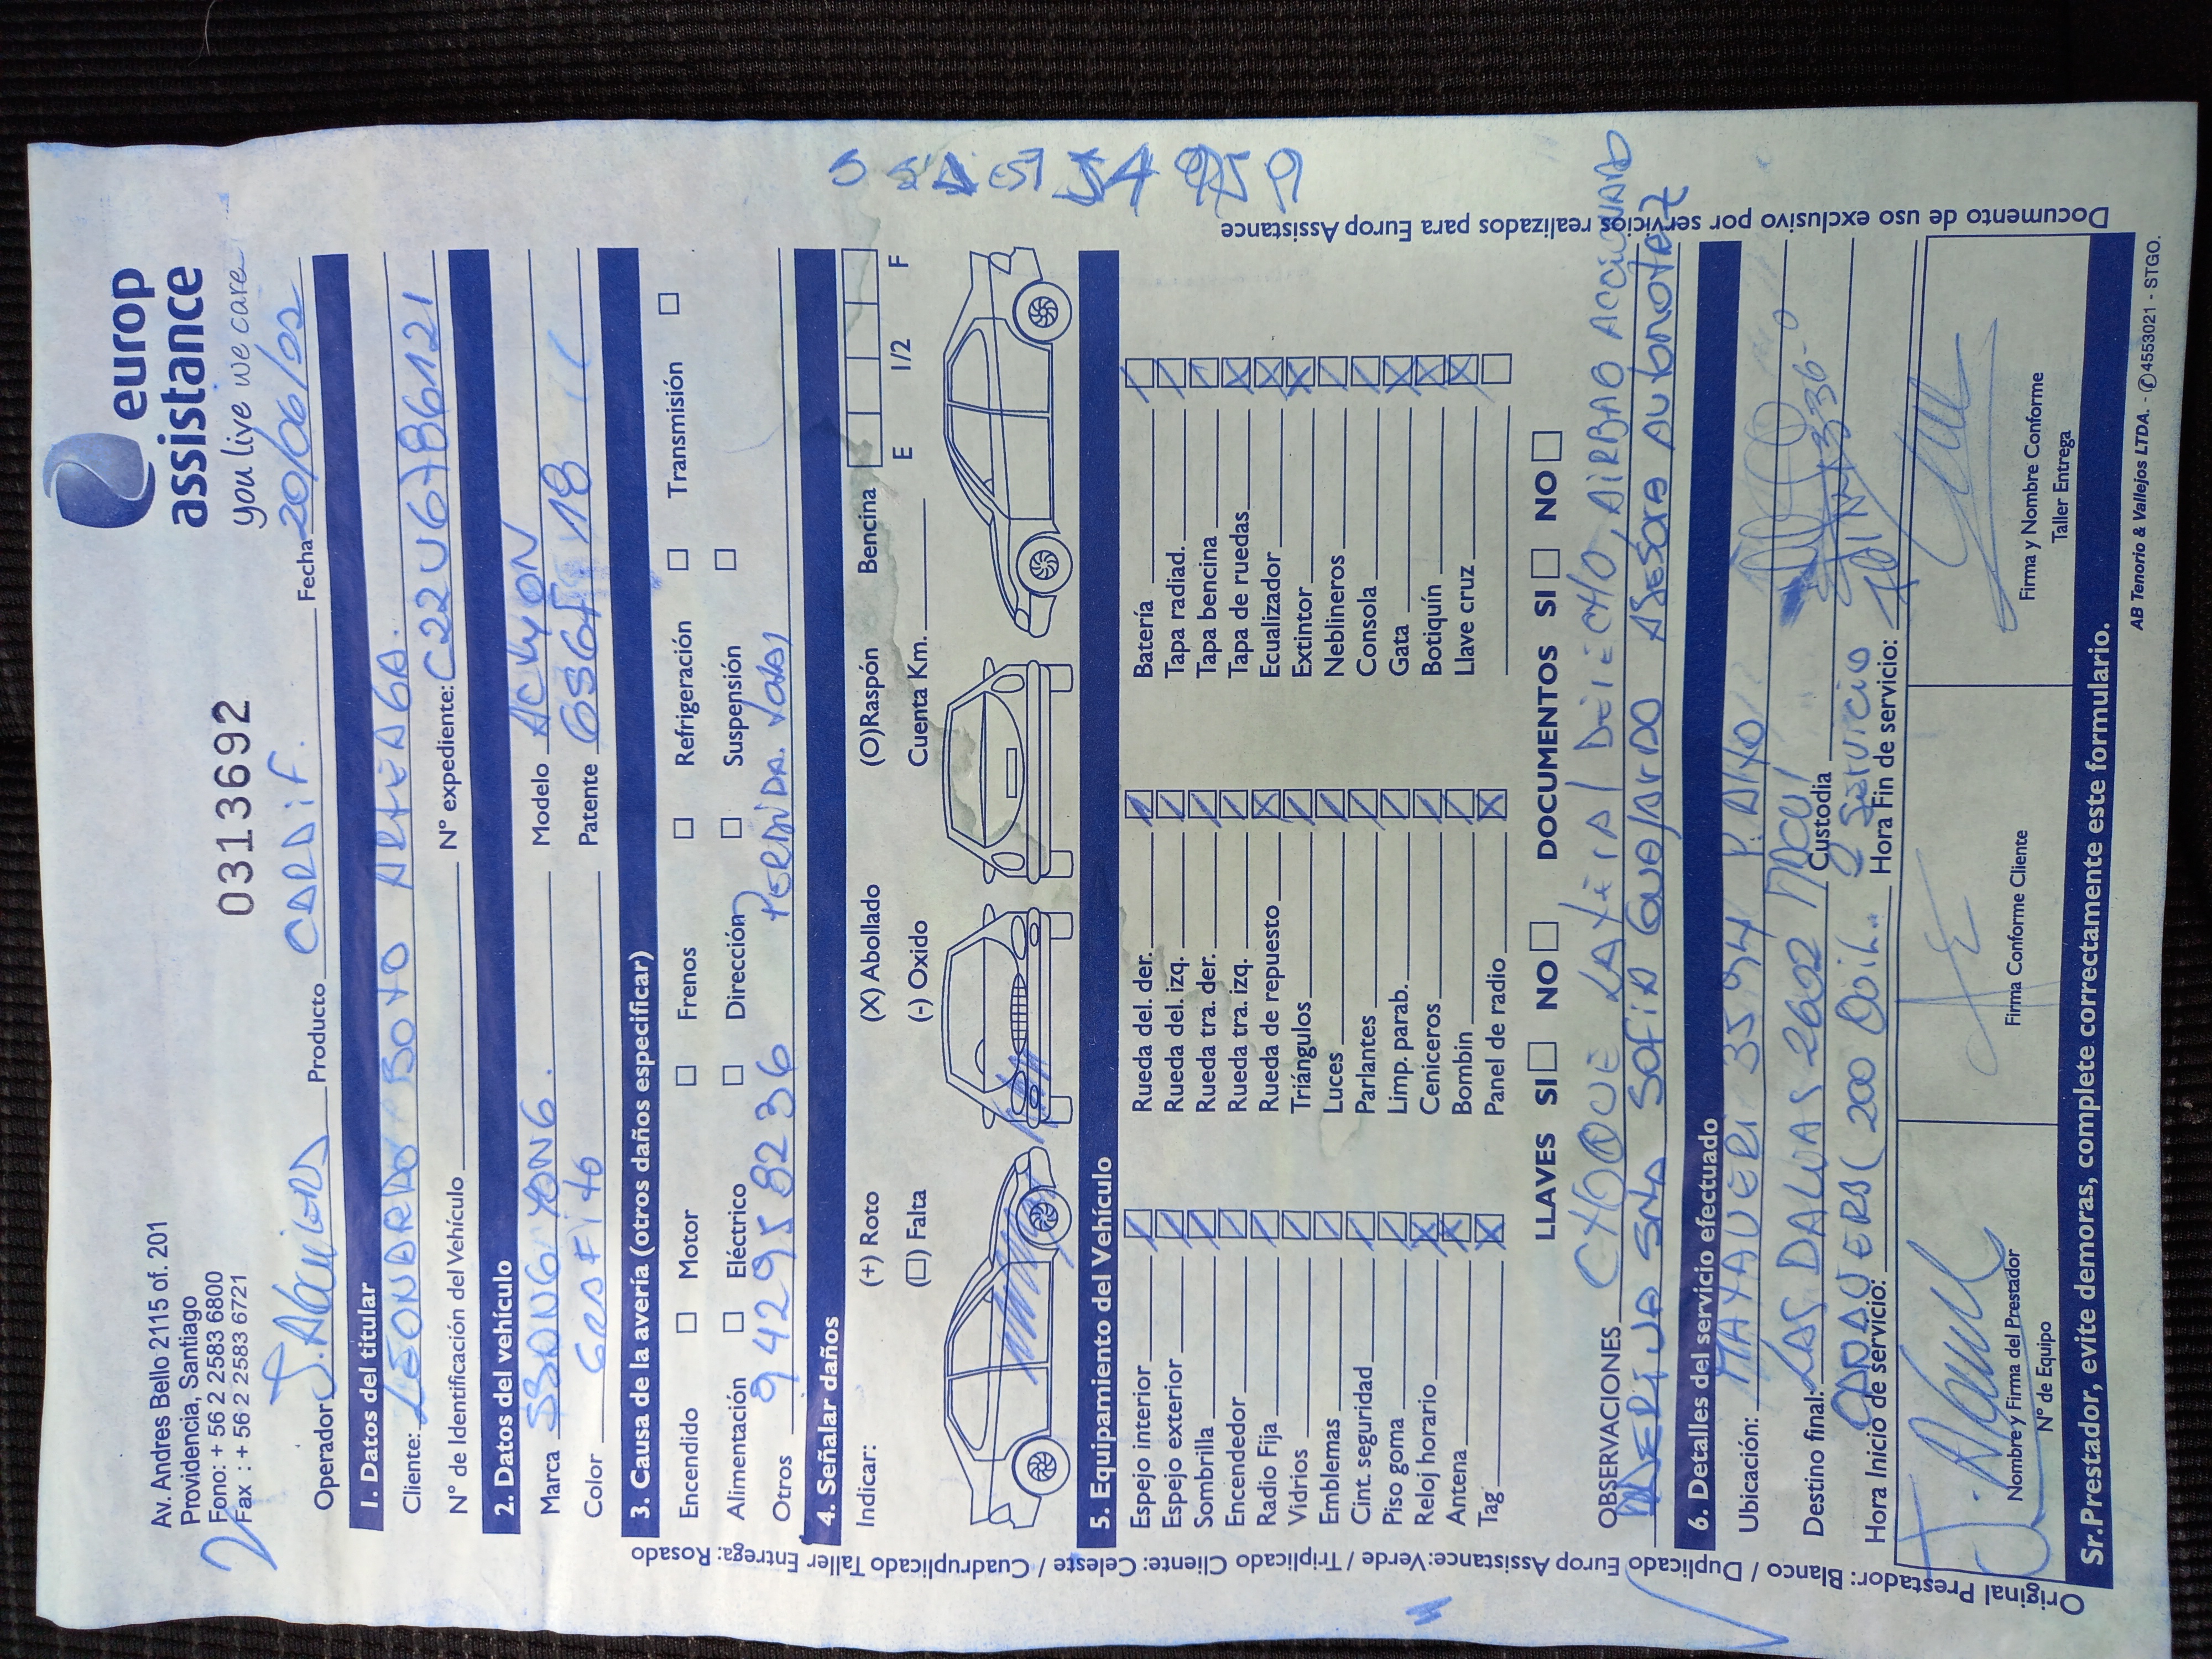 europ
assistance
you live we care
Av. Andres Bello 2115 of. 201
Providencia, Santiago
Fono: + 56 2 2583 6800
Fax : + 56 2 2583 6721
0313692
Operador J. Aguilera Producto CARDIF. Fecha 20/06/22
1. Datos del titular
Cliente: LEONARDO SOTO ARTEAGA.
N° de Identificación del Vehículo N° expediente: C22U6786121
2. Datos del vehículo
Marca SSANGYONG. Modelo ACTYON
Color GRAFITO Patente GSGF 18
3. Causa de la avería (otros daños especificar)
Encendido Motor Frenos Refrigeración Transmisión
Alimentación Eléctrico Dirección Suspensión
Otros 942958236 PERDIDA TOTAL
4. Señalar daños
Indicar: (+) Roto (X) Abollado (O)Raspón Bencina
(□) Falta (-) Oxido Cuenta Km. E 1/2 F
5. Equipamiento del Vehículo
Espejo interior Rueda del. der. Batería
Espejo exterior Rueda del. izq. Tapa radiad.
Sombrilla Rueda tra. der. Tapa bencina
Encendedor Rueda tra. izq. Tapa de ruedas
Radio Fija Rueda de repuesto Ecualizador
Vidrios Triángulos Extintor
Emblemas Luces Neblineros
Cint. seguridad Parlantes Consola
Piso goma Limp. parab. Gata
Reloj horario Ceniceros Botiquín
Antena Bombin Llave cruz
Tag Panel de radio
LLAVES SI NO DOCUMENTOS SI NO
OBSERVACIONES CHOQUE LATERAL DERECHO, AIRBAG ACCIONADO
SRTA SOFIA GUAJARDO ASESORA AUTONOTEZ
6. Detalles del servicio efectuado
Ubicación: 3594
Destino final: LAS DALIAS 2602 MACUL Custodia
Hora Inicio de servicio: Hora Fin de servicio:
Servicio
Nombre y Firma del Prestador
N° de Equipo
Firma Conforme Cliente
Firma y Nombre Conforme
Taller Entrega
Sr.Prestador, evite demoras, complete correctamente este formulario.
AB Tenorio & Vallejos LTDA. - ✆4553021 - STGO.
Original Prestador: Blanco / Duplicado Europ Assistance:Verde / Triplicado Cliente: Celeste / Cuadruplicado Taller Entrega: Rosado
Documento de uso exclusivo por servicios realizados para Europ Assistance